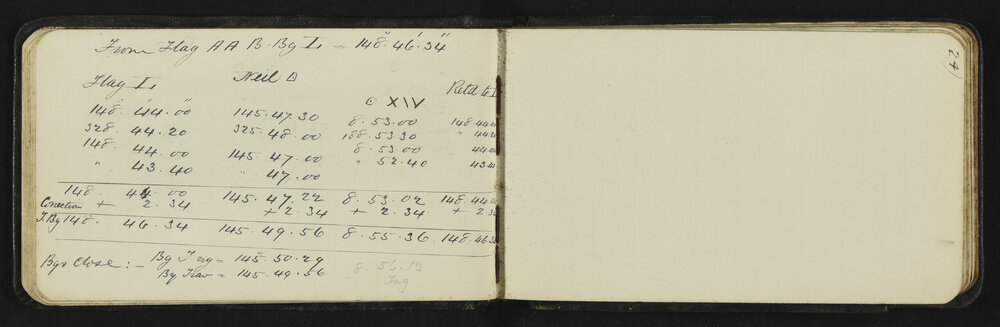 From Flag AA B. Bg L = 148°. 46'. 34"
Flag L Neil △ ⊙ XIV Retd to L
148°. 44'. 00" 145. 47. 30 8. 53. 00 148. 44. 00
328. 44. 20 325. 48. 00 188. 53 30 " 44. 20
148. 44. 00 145. 47. 00 8. 53. 00 44. 00
" 43. 40 " 47. 00 " 52. 40 43. 40
148. 44. 00 145. 47. 22 8. 53. 02 148. 44. 00
Correction + 2. 34 + 2. 34 + 2. 34 + 2. 34
T. Bg 148. 46. 34 145. 49. 56 8. 55. 36 148. 46. 34
Bgs Close: — Bg Tng = 145. 50. 29 8. 56. 13
By Trav = 145. 49. 56 Tng
24